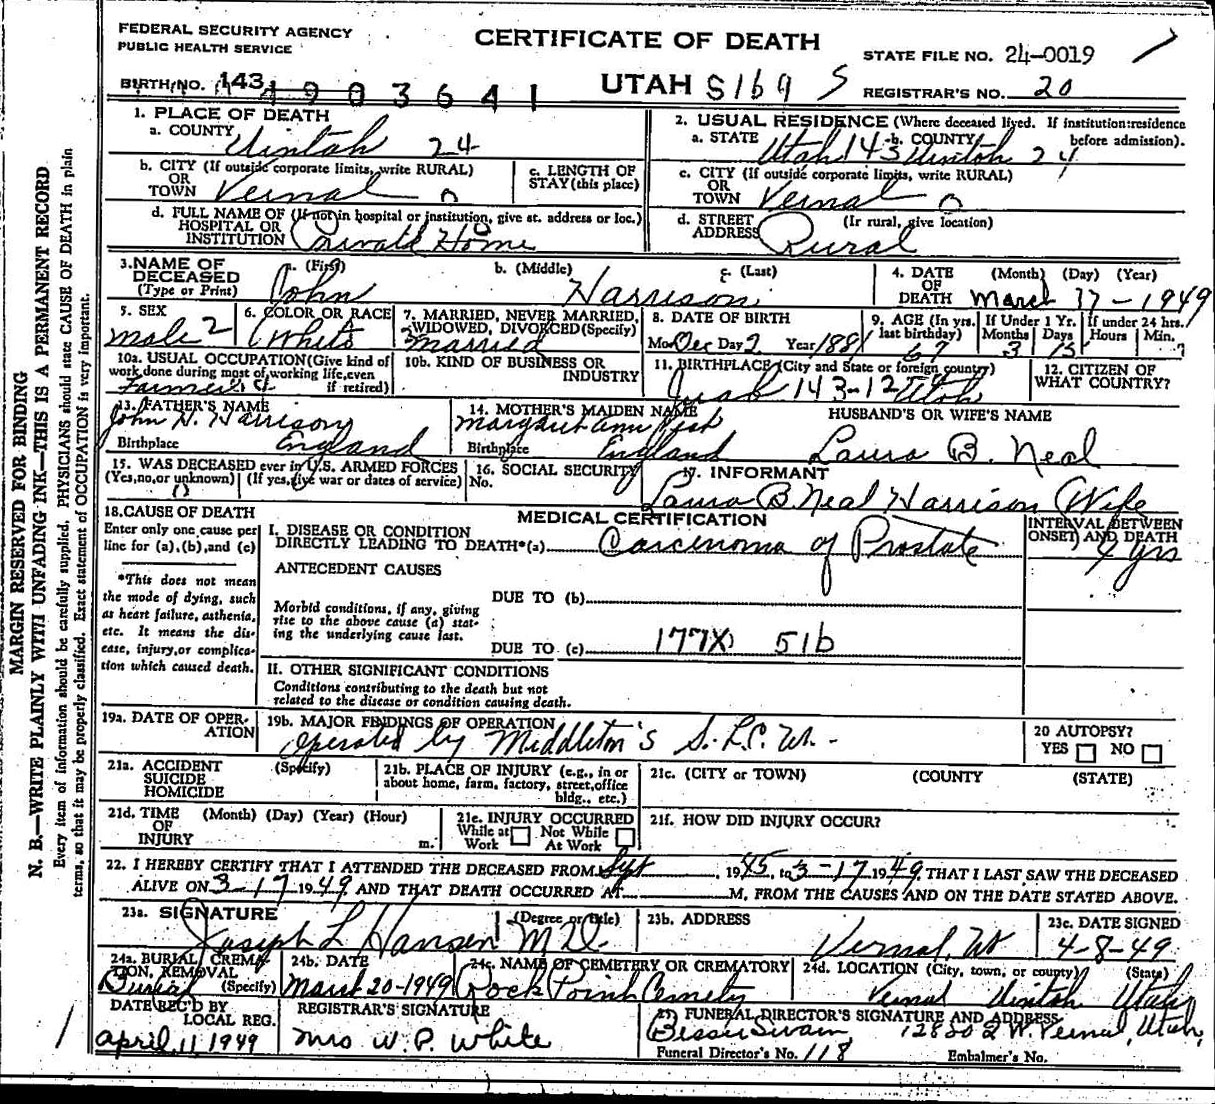 FEDERAL SECURITY AGENCY
PUBLIC HEALTH SERVICE
CERTIFICATE OF DEATH
STATE FILE NO. 24-0019
BIRTH NO. 143
4903641
UTAH S169 S
REGISTRAR'S NO. 20
MARGIN RESERVED FOR BINDING
N. B.—WRITE PLAINLY WITH UNFADING INK—THIS IS A PERMANENT RECORD
Every item of information should be carefully supplied. PHYSICIANS should state CAUSE OF DEATH in plain
terms, so that it may be properly classified. Exact statement of OCCUPATION is very important.
1. PLACE OF DEATH
a. COUNTY Uintah 24
2. USUAL RESIDENCE (Where deceased lived. If institution: residence
before admission).
a. STATE Utah 143 b. COUNTY Uintah 24
b. CITY (If outside corporate limits, write RURAL)
OR
TOWN Vernal 0
c. LENGTH OF
STAY (this place)
c. CITY (If outside corporate limits, write RURAL)
OR
TOWN Vernal 0
d. FULL NAME OF (If not in hospital or institution, give st. address or loc.)
HOSPITAL OR
INSTITUTION Private Home
d. STREET (Ir rural, give location)
ADDRESS Rural
3. NAME OF
DECEASED
(Type or Print)
a. (First) b. (Middle) c. (Last)
John Harrison
4. DATE (Month) (Day) (Year)
OF
DEATH March 17-1949
5. SEX
male 2
6. COLOR OR RACE
White
7. MARRIED, NEVER MARRIED,
WIDOWED, DIVORCED (Specify)
Married
8. DATE OF BIRTH
Mo. Dec Day 2 Year 1881
9. AGE (In yrs.
last birthday)
67
If Under 1 Yr.
Months Days
3 15
If under 24 hrs.
Hours Min.
10a. USUAL OCCUPATION (Give kind of
work done during most of working life, even
if retired)
Farmer
10b. KIND OF BUSINESS OR
INDUSTRY
11. BIRTHPLACE (City and State or foreign country)
Juab 143-12 Utah
12. CITIZEN OF
WHAT COUNTRY?
13. FATHER'S NAME
John H. Harrison
Birthplace England
14. MOTHER'S MAIDEN NAME
Margaret Ann
Birthplace England
HUSBAND'S OR WIFE'S NAME
Laura B. Neal
15. WAS DECEASED ever in U.S. ARMED FORCES
(Yes, no, or unknown) (If yes, give war or dates of service)
0
16. SOCIAL SECURITY
No.
17. INFORMANT
Laura B. Neal Harrison Wife
18. CAUSE OF DEATH
Enter only one cause per
line for (a), (b), and (c)
*This does not mean
the mode of dying, such
as heart failure, asthenia,
etc. It means the dis-
ease, injury, or complica-
tion which caused death.
MEDICAL CERTIFICATION
I. DISEASE OR CONDITION
DIRECTLY LEADING TO DEATH*(a) Carcinoma of Prostate
INTERVAL BETWEEN
ONSET AND DEATH
4 yrs
ANTECEDENT CAUSES
DUE TO (b)
Morbid conditions, if any, giving
rise to the above cause (a) stat-
ing the underlying cause last.
DUE TO (c) 177X 51b
II. OTHER SIGNIFICANT CONDITIONS
Conditions contributing to the death but not
related to the disease or condition causing death.
19a. DATE OF OPER-
ATION
19b. MAJOR FINDINGS OF OPERATION
Operated by Middleton's S.L.C. Ut.
20 AUTOPSY?
YES NO
21a. ACCIDENT
SUICIDE
HOMICIDE
(Specify)
21b. PLACE OF INJURY (e.g., in or
about home, farm, factory, street, office
bldg., etc.)
21c. (CITY or TOWN) (COUNTY (STATE)
21d. TIME (Month) (Day) (Year) (Hour)
OF
INJURY m.
21e. INJURY OCCURRED
While at Not While
Work At Work
21f. HOW DID INJURY OCCUR?
22. I HEREBY CERTIFY THAT I ATTENDED THE DECEASED FROM Sept, 1945, to 3-17 1949 THAT I LAST SAW THE DECEASED
ALIVE ON 3-17 1949 AND THAT DEATH OCCURRED AT M, FROM THE CAUSES AND ON THE DATE STATED ABOVE.
23a. SIGNATURE (Degree or title)
Joseph L Hansen M D.
23b. ADDRESS
Vernal, Ut
23c. DATE SIGNED
4-8-49
24a. BURIAL, CREMA-
TION, REMOVAL
(Specify)
Burial
24b. DATE
March 20-1949
24c. NAME OF CEMETERY OR CREMATORY
Rock Point Cemetry
24d. LOCATION (City, town, or county) (State)
Vernal Uintah Utah
DATE REC'D BY
LOCAL REG.
April 11 1949
REGISTRAR'S SIGNATURE
Mrs W. P. White
FUNERAL DIRECTOR'S SIGNATURE AND ADDRESS
Swain W. Vernal, Utah,
Funeral Director's No. 118 Embalmer's No.